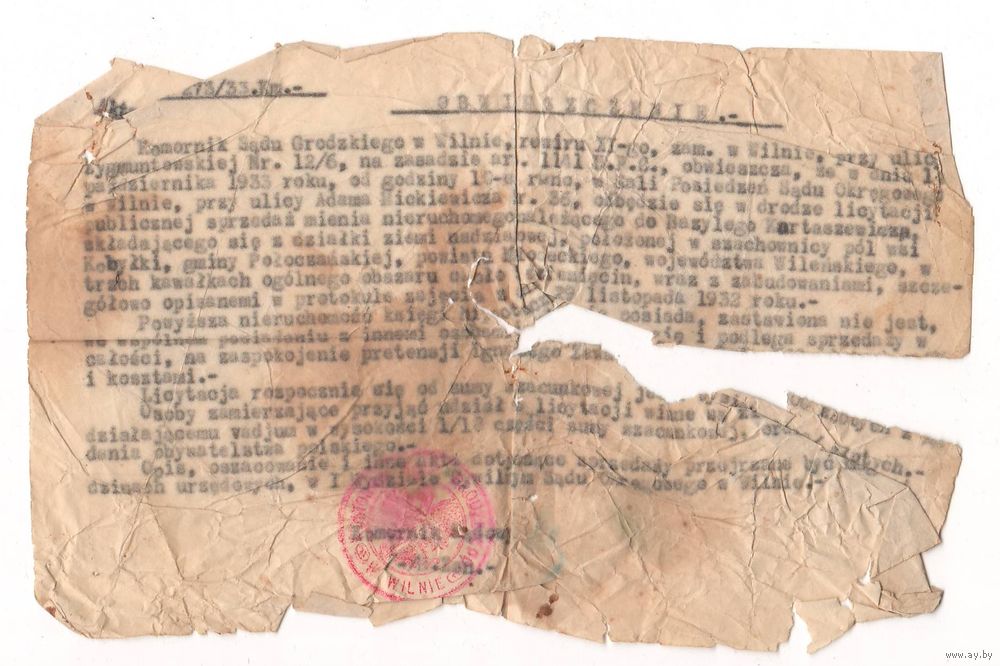 73/33.Km.-
OBWIESZCZENIE.-
Komornik Sądu Grodzkiego w Wilnie, rewiru XI-go, zam. w Wilnie, przy ulicy
Zygmuntowskiej Nr. 12/6, na zasadzie ar. 1141 K.P.C., obwieszcza, że w dniu
października 1933 roku, od godziny 10-ej rano, w Sali Posiedzeń Sądu Okręgowego
w Wilnie, przy ulicy Adama Mickiewicza Nr. 36, odbędzie się w drodze licytacji
publicznej sprzedaż mienia nieruchomego należącego do Bazylego Kartaszewicza,
składającego się z działki ziemi nadziałowej położonej w szachownicy pól wsi
Kobyłki, gminy Połoczańskiej, powiatu województwa Wileńskiego, w
trzech kawałkach ogólnego obszaru dziesięcin, wraz z zabudowaniami, szcze-
gółowo opisanemi w protokule listopada 1932 roku.-
Powyższa nieruchomość księgi posiada, zastawiona nie jest,
w wspólnem posiadaniu z innemi i podlega sprzedaży w
całości, na zaspokojenie pretensji
i kosztami.-
Licytacja rozpocznie się od sumy szacunkowej
Osoby zamierzające przyjąć udział w licytacji winne
działającemu vadjum w wysokości 1/10 części sumy szacunkowej,
dania obywatelstwa polskiego.-
Opis, oszacowanie i inne akta dotyczące sprzedaży przejrzane być
dzinach urzędowych, w I Wydziale Cywilnym Sądu Okręgowego w Wilnie.-
Komornik Sądowy
W WILNIE
www.ay.by